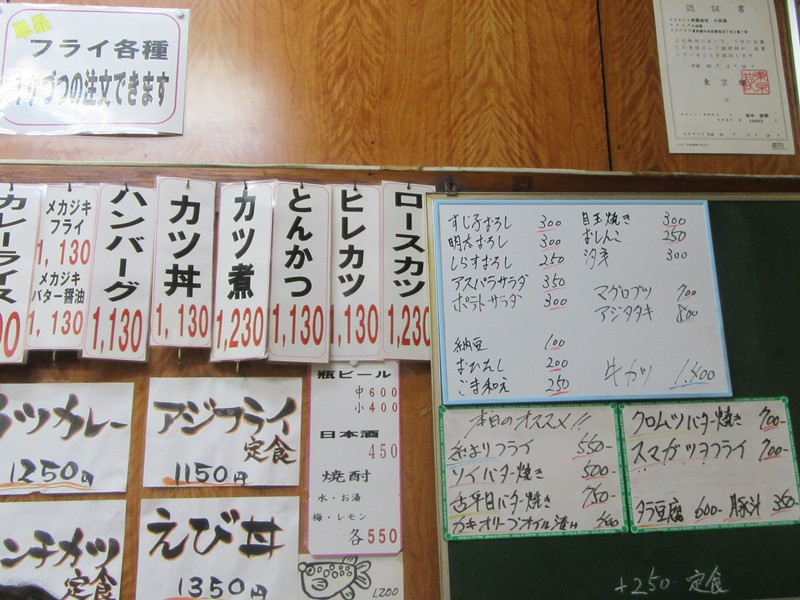 単品
フライ各種
1ヶづつの注文できます
認証書
東京
カレーライス
メカジキ
フライ
1,130
メカジキ
バター醤油
1,130
ハンバーグ
1,130
カツ丼
1,130
カツ煮
1,230
とんかつ
1,130
ヒレカツ
1,130
ロースカツ
1,230
すじ子おろし 300
明太おろし 300
しらすおろし 250
アスパラサラダ 350
ポテトサラダ 300
納豆 100
おひたし 200
ごま和え 250
目玉焼き 300
おしんこ 250
300
マグロブツ 700
アジタタキ 800
牛カツ 1,400
本日のオススメ!!
糸よりフライ 550-
ソイバター焼き 500-
古平目バター焼き 750-
カキオリーブオイル漬け
クロムツバター焼き 700-
スマガツヲフライ 700-
タラ豆腐 600- 豚汁 350-
+250- 定食
ツカレー
1250円
アジフライ
定食
1150円
ンチカツ
定食
えび丼
1350円
瓶ビール
中600
小400
日本酒
450
焼酎
水・お湯
梅・レモン
各550
1200